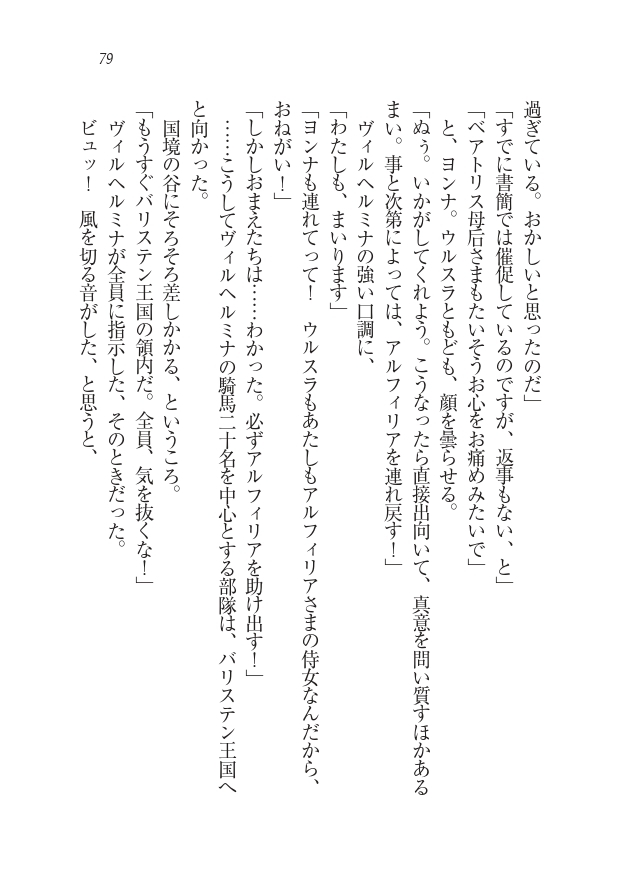 79
過ぎている。おかしいと思ったのだ」
「すでに書簡では催促しているのですが、返事もない、と」
「ベアトリス母后さまもたいそうお心をお痛めみたいで」
と、ヨンナ。ウルスラともども、顔を曇らせる。
「ぬぅ。いかがしてくれよう。こうなったら直接出向いて、真意を問い質すほかある
まい。事と次第によっては、アルフィリアを連れ戻す！」
ヴィルヘルミナの強い口調に、
「わたしも、まいります」
「ヨンナも連れてって！　ウルスラもあたしもアルフィリアさまの侍女なんだから、
おねがい！」
「しかしおまえたちは……わかった。必ずアルフィリアを助け出す！」
……こうしてヴィルヘルミナの騎馬二十名を中心とする部隊は、バリステン王国へ
と向かった。
国境の谷にそろそろ差しかかる、というころ。
「もうすぐバリステン王国の領内だ。全員、気を抜くな！」
ヴィルヘルミナが全員に指示した、そのときだった。
ビュッ！　風を切る音がした、と思うと、